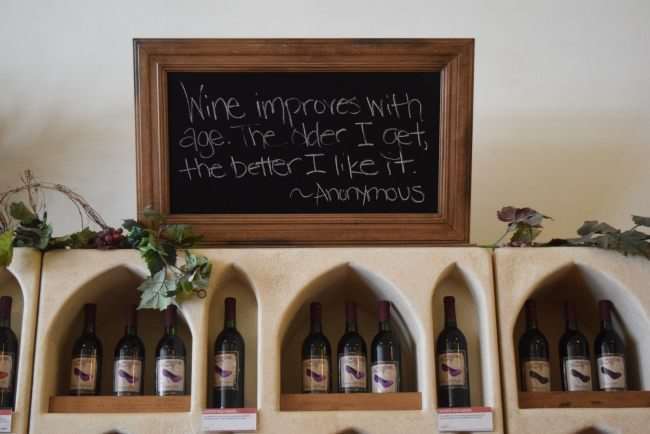 Wine improves with
age. The older I get,
the better I like it.
~Anonymous